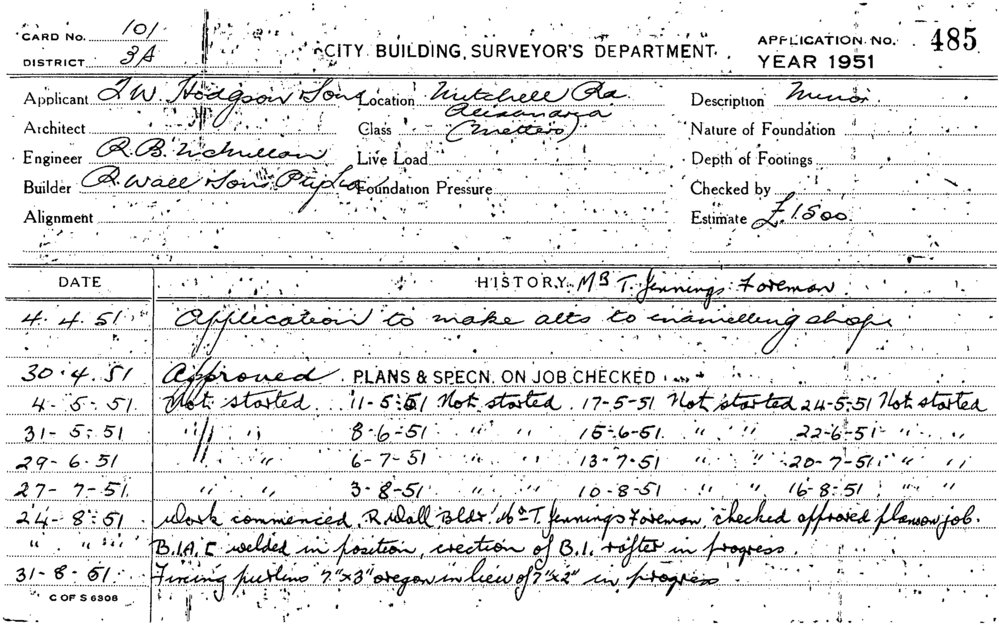 CARD No. 101
DISTRICT 3A
CITY BUILDING SURVEYOR'S DEPARTMENT
APPLICATION No. 485
YEAR 1951
Applicant T.W. Hodgson & Sons Location Mitchell Rd. Description Minor
Alexandria
Architect Class (Metters) Nature of Foundation
Engineer R.B. McMillan Live Load Depth of Footings
Builder R. Wall & Sons Pty Ltd Foundation Pressure Checked by
Alignment Estimate £1500
DATE HISTORY Mr T. Jennings Foreman
4.4.51 Application to make alts to enamelling shop
30.4.51 Approved PLANS & SPECN. ON JOB CHECKED
4-5-51 Not started 11-5-51 Not started 17-5-51 Not started 24-5-51 Not started
31-5-51 " " 8-6-51 " " 15-6-51 " " 22-6-51 " "
29-6-51 " " 6-7-51 " " 13-7-51 " " 20-7-51 " "
27-7-51 " " 3-8-51 " " 10-8-51 " " 16-8-51 " "
24-8-51 Work commenced, R Wall Bldr Mr T. Jennings Foreman, checked approved plan on job.
" " " welded in position, erection of B.1. rafter in progress.
31-8-51 Fixing purlins 7"x3" oregon in lieu of 7"x2" in progress
C OF S 6308